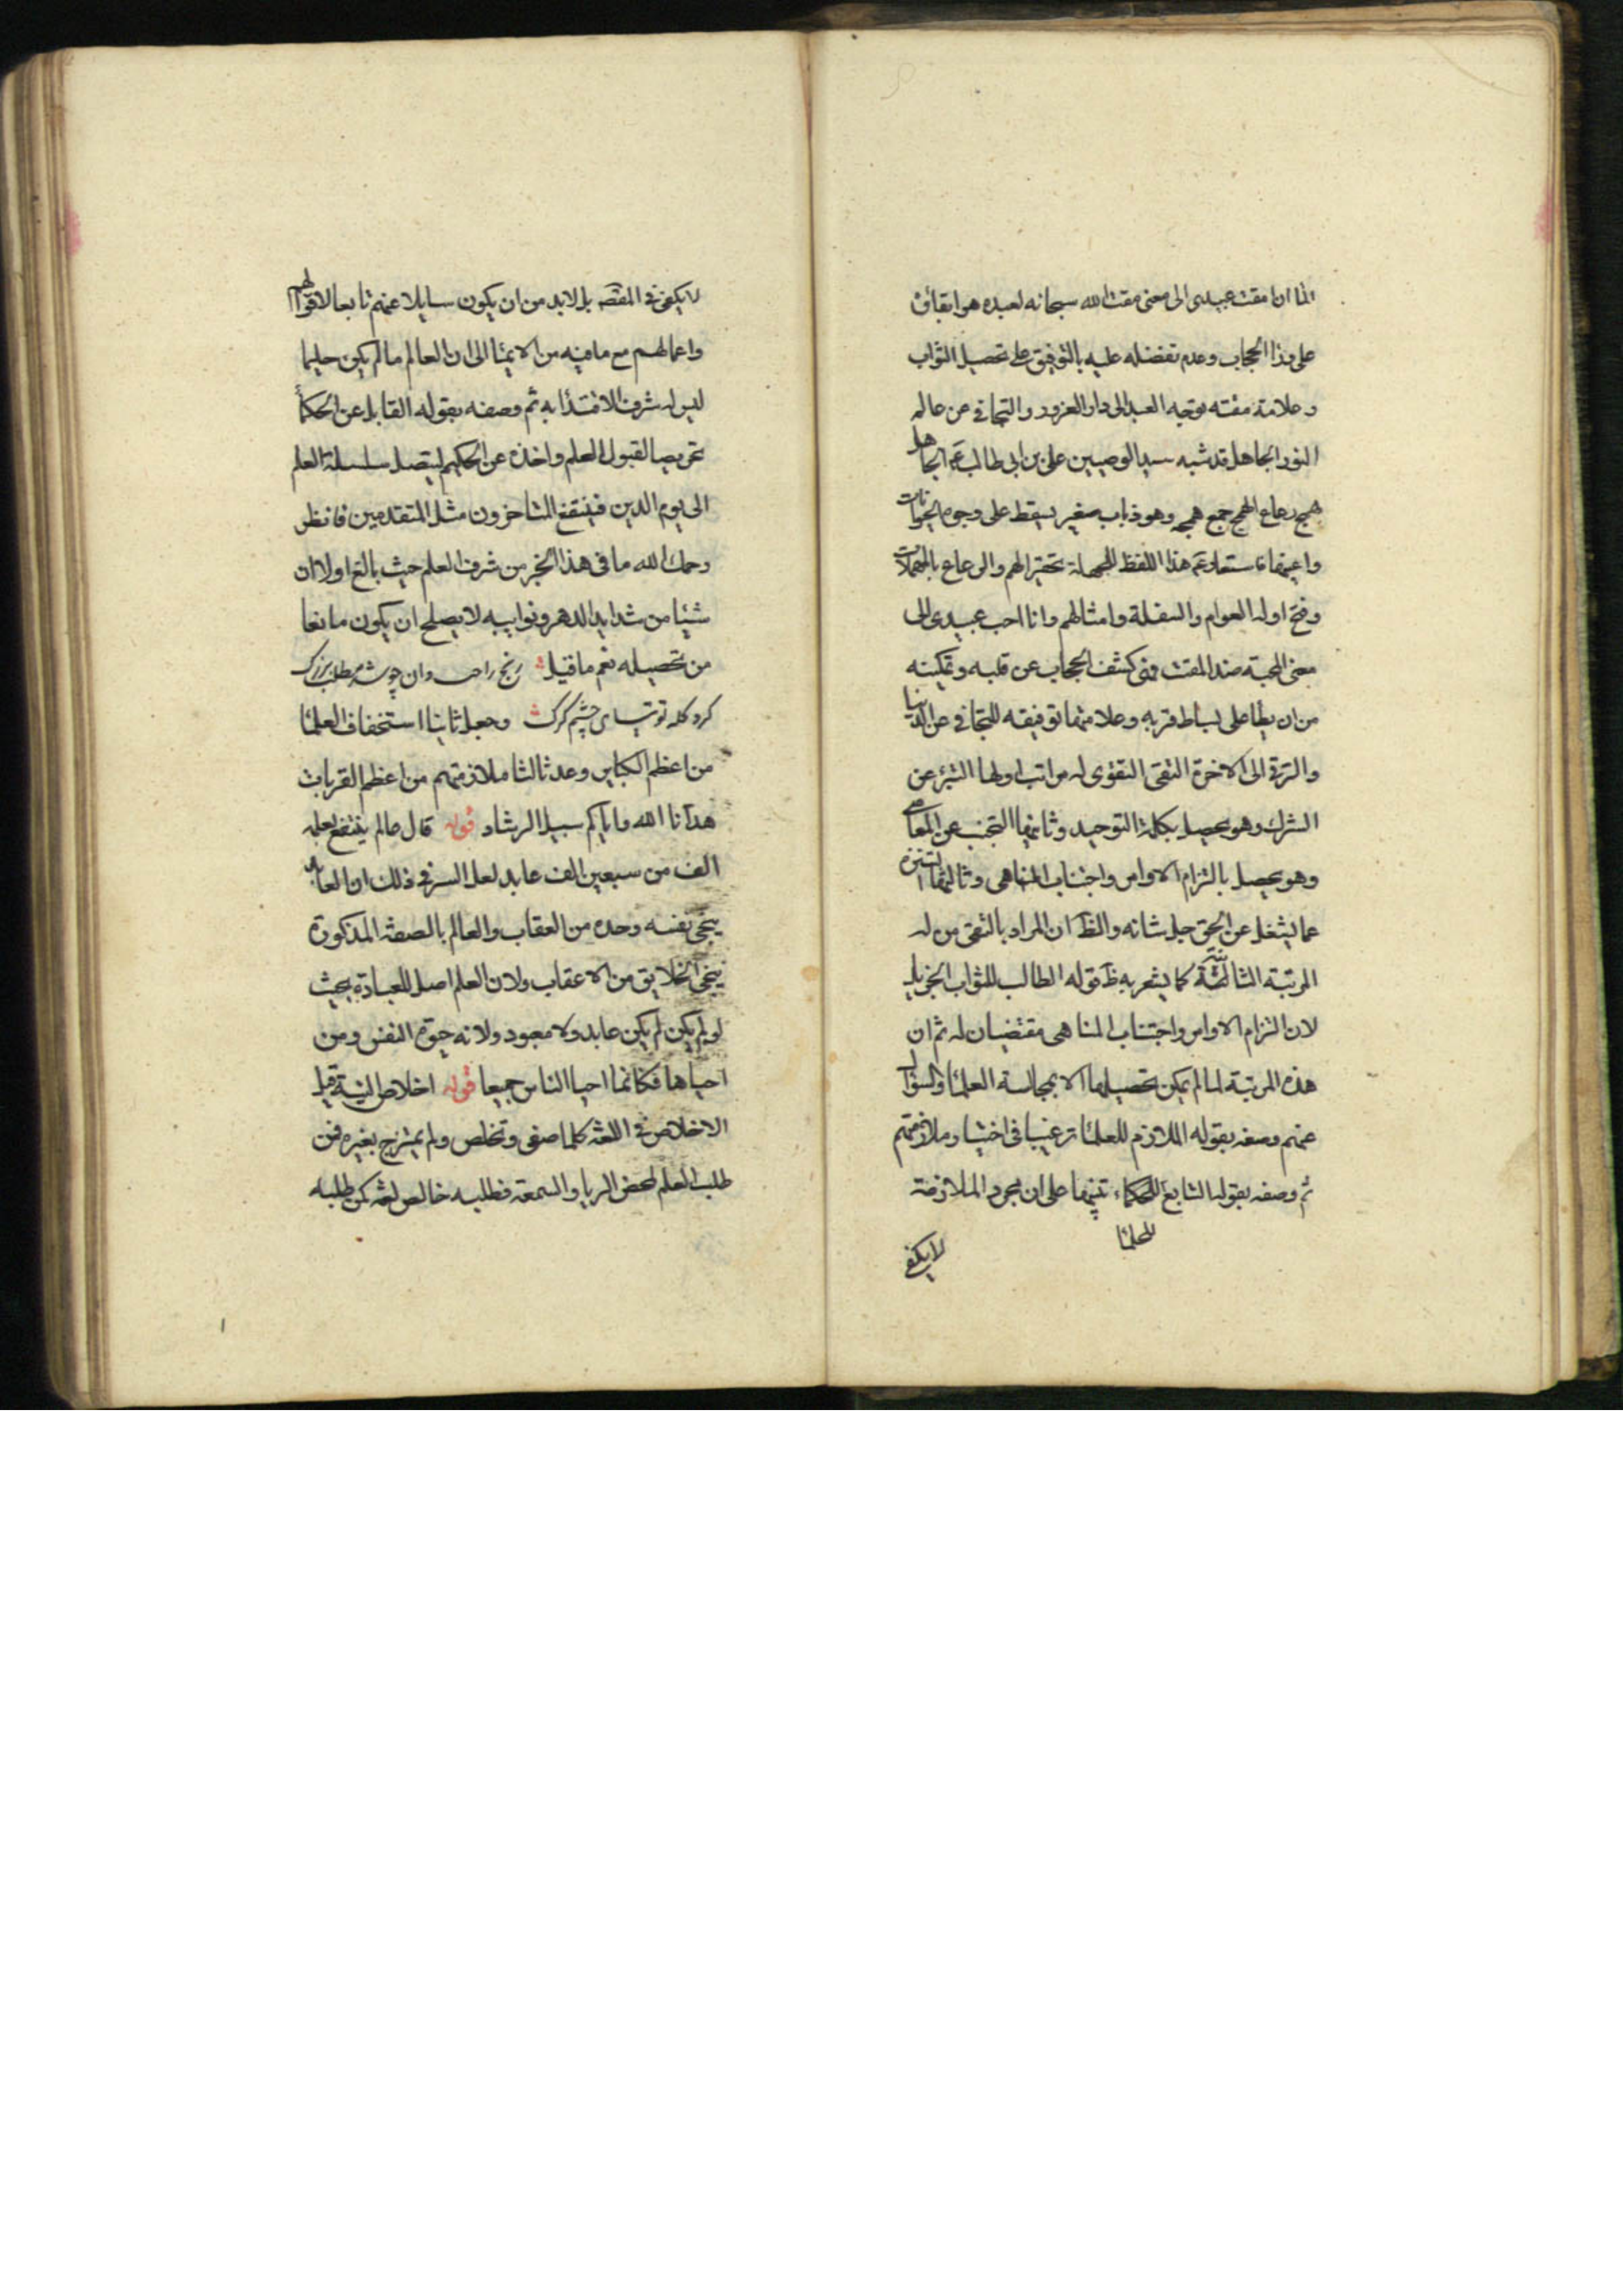 الما ان امقت عبيدى الى معنى مقت الله سبحانه لعبده هو ابقاؤه
على هذا الحجاب وعدم تفضله عليه بالتوفيق على تحصيل الثواب
وعلامة مقته توجه العبد الى دار الغرور والتجافى عن عالم
النور الجاهل قد شبه سيد الوصيين على بن ابى طالب ع الجاهل
همج رعاع الهمج جمع همجه وهو ذباب صغير يسقط على وجوه الحيوانات
واعينها استعاد ع هذا اللفظ للجهلة تحقيرا لهم والرعاع بالمهملات
وفتح اوله العوام والسفلة وامثالهم وانا احب عبيدى الى
معنى المحبة ضد المقت وهى كشف الحجاب عن قلبه وتمكينه
من ان يطأ على بساط قربه وعلامتها توفيقه للتجافى عن الدنيا
والترقى الى الاخرة التقى التقوى له مراتب اولها التبرء عن
الشرك وهو يحصل بكلمة التوحيد وثانيها التجنب عن المعاصى
وهو يحصل بالتزام الاوامر واجتناب المناهى وثالثها التنزه
عما يشغل عن الحق جل شانه والظ ان المراد بالتقى من له
المرتبة الثالثة كما يشعر به ظ قوله الطالب للثواب الجزيل
لان التزام الاوامر واجتناب المناهى مقتضيان له ثم ان
هذه المرتبة لما لم يمكن تحصيلها الا بمجالسة العلماء والسؤال
عنهم وصفه بقوله الملازم للعلماء ترغيبا فى اختيار ملازمتهم
ثم وصفه بقوله التابع للحكماء تنبيها على ان مجرد الملازمة
للحلماء
لا يكفى
لا يكفى فى المقصد بل لا بد من ان يكون سايلا عنهم تابعا لاقوالهم
واعمالهم مع ما فيه من الايماء الى ان العالم ما لم يكن حليما
ليس له شرف الاقتداء به ثم وصفه بقوله القابل عن الحكماء
تحريصا لقبول العلم واخذه عن الحكيم ليتصل سلسلة العلم
الى يوم الدين فينتفع المتاخرون مثل المتقدمين فانظر
رحمك الله ما فى هذا الخبر من شرف العلم حيث بالغ اولا ان
شيئا من شدايد الدهر ونوايبه لا يصلح ان يكون مانعا
من تحصيله نعم ما قيل رنج راحت دان چو شد مطلب بزرك
كرد كله توتياى چشم كرك وجعل ثانيا استخفاف العلماء
من اعظم الكباير وعد ثالثا ملازمتهم من اعظم القربات
هدانا الله واياكم سبيل الرشاد قوله قال عالم ينتفع بعلمه
الف من سبعين الف عابد لعل السر فى ذلك ان العابد
ينجى نفسه وحده من العقاب والعالم بالصفة المذكورة
ينجى الخلايق من الاعقاب ولان العلم اصل للعبادة بحيث
لو لم يكن لم يكن عابد ولا معبود ولانه حيوة النفس ومن
احياها فكانما احيا الناس جميعا قوله اخلاص النية قيل
الاخلاص فى اللغة كلما صفى وتخلص ولم يمتزج بغيره فمن
طلب العلم لمحض الريا والسمعة فطلبه خالص لغة كمن طلبه